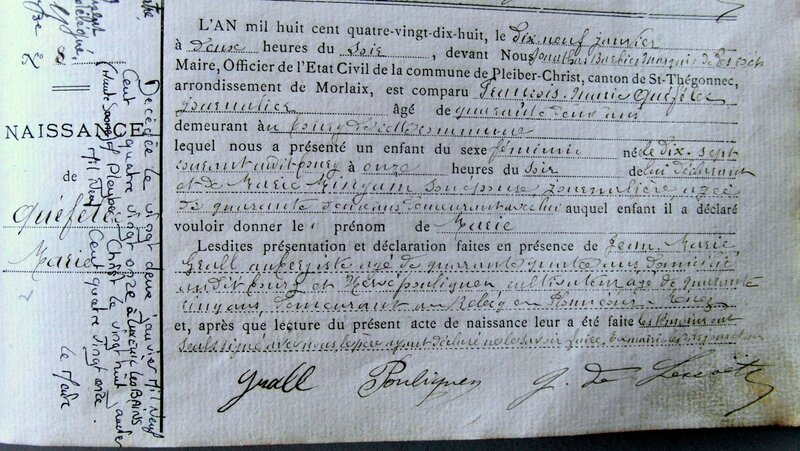 N° 8
NAISSANCE
de
Quéfélec
Marie
Décédée le vingt deux janvier Mil Neuf
Cent quatre vingt onze à LUXEUIL LES BAINS
(Haute Saone)
Pleyber Christ le vingt huit janvier
Mil Neuf Cent quatre vingt onze.
Le Maire
L'AN mil huit cent quatre-vingt-dix-huit, le dix neuf janvier
à deux heures du soir, devant Nous
Maire, Officier de l'Etat Civil de la commune de Pleiber-Christ, canton de St-Thégonnec,
arrondissement de Morlaix, est comparu François Marie Quéfélec
journalier âgé de quarante deux ans
demeurant au bourg de cette commune
lequel nous a présenté un enfant du sexe féminin né le dix-sept
courant audit bourg à onze heures du soir de lui déclarant
et de Marie son épouse journalière agée
de quarante ans demeurant avec lui auquel enfant il a déclaré
vouloir donner le prénom de Marie
Lesdites présentation et déclaration faites en présence de Jean Marie
Grall aubergiste agé de quarante quatre ans domicilié
audit bourg et Hervé Pouliquen, cultivateur agé de quarante
cinq ans, demeurant au Relecq en Plounéour-Ménez
et, après que lecture du présent acte de naissance leur a été faite les témoins ont
seuls signé avec nous, le père ayant déclaré ne le savoir faire
Grall Pouliquen J. de Lescoët